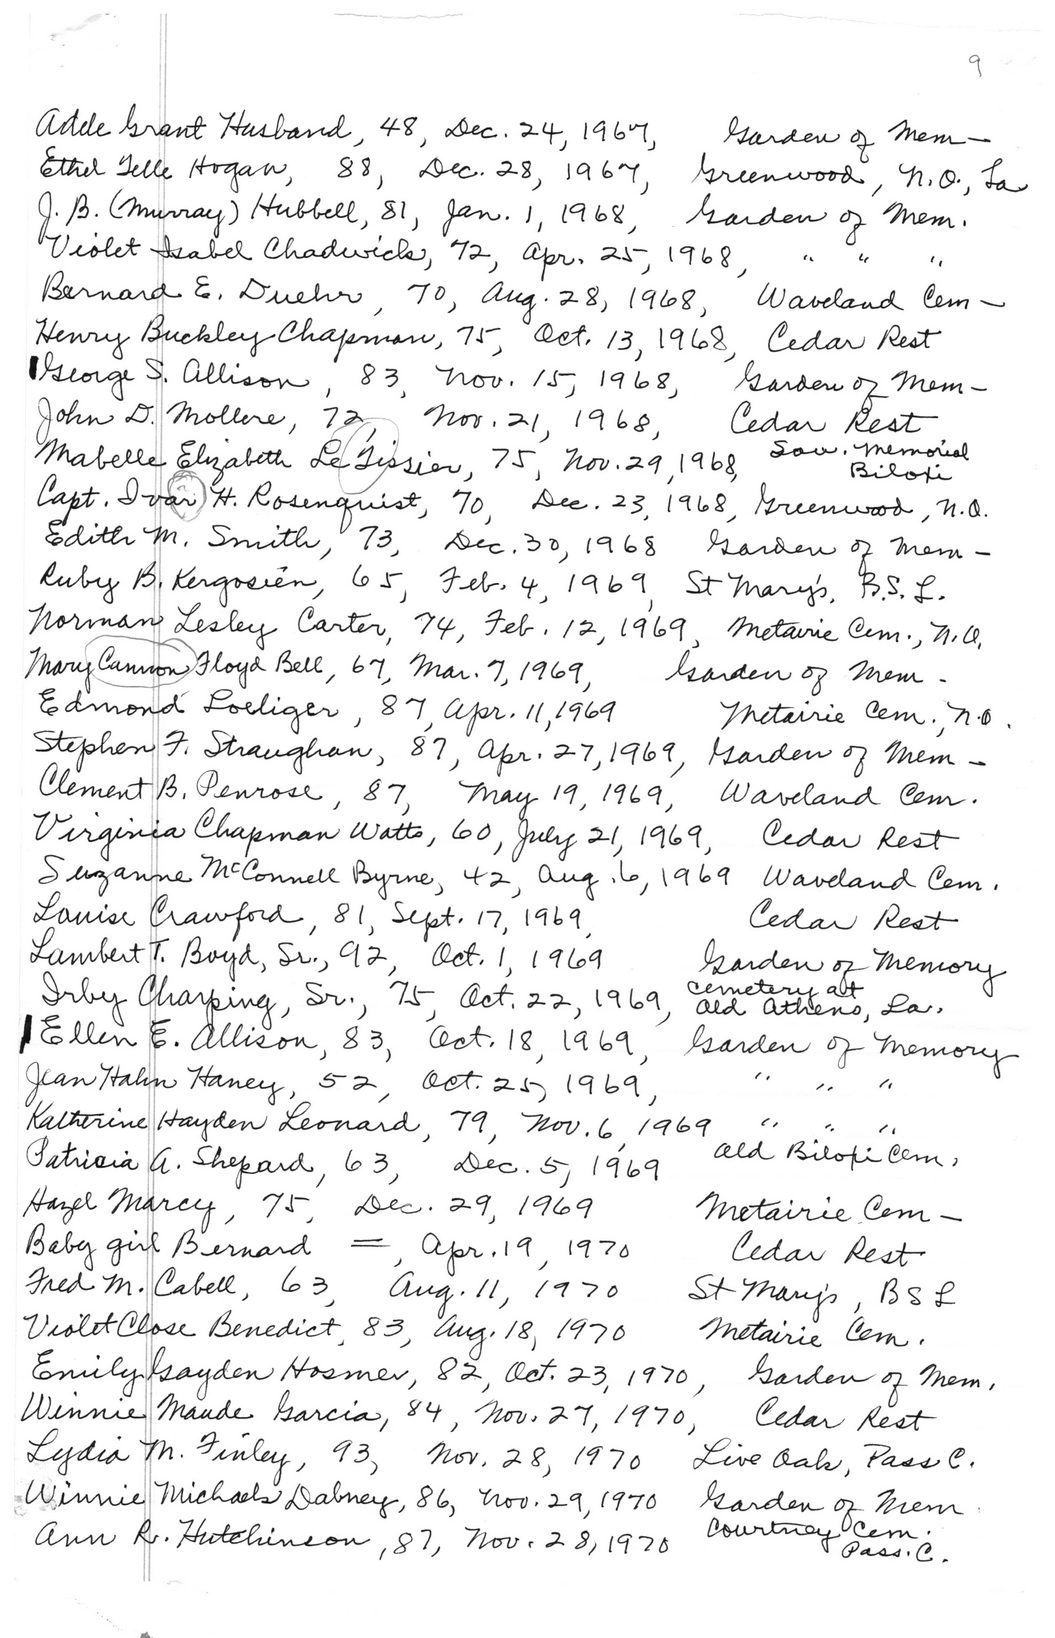 9
Adele Grant Husband, 48, Dec. 24, 1967, Garden of Mem—
Ethel Telle Hogan, 88, Dec. 28, 1967, Greenwood, N.O., La
J. B. (Murray) Hubbell, 81, Jan. 1, 1968, Garden of Mem.
Violet Isabel Chadwick, 72, Apr. 25, 1968, " " "
Bernard E. Duehr, 70, Aug. 28, 1968, Waveland Cem—
Henry Buckley Chapman, 75, Oct. 13, 1968, Cedar Rest
George S. Allison, 83, Nov. 15, 1968, Garden of Mem—
John D. Mollere, 72, Nov. 21, 1968, Cedar Rest
Mabelle Elizabeth Le Tissier, 75, Nov. 29, 1968, Sou. Memorial Biloxi
Capt. Ivar H. Rosenquist, 70, Dec. 23, 1968, Greenwood, N.O.
Edith M. Smith, 73, Dec. 30, 1968 Garden of Mem—
Ruby B. Kergosien, 65, Feb. 4, 1969, St Mary's, B.S.L.
Norman Lesley Carter, 74, Feb. 12, 1969, Metairie Cem., N.O.
Mary Cannon Floyd Bell, 67, Mar. 7, 1969, Garden of Mem-
Edmond Loeliger, 87, Apr. 11, 1969 Metairie Cem., N.O.
Stephen F. Straughan, 87, Apr. 27, 1969, Garden of Mem—
Clement B. Penrose, 87, May 19, 1969, Waveland Cem.
Virginia Chapman Watts, 60, July 21, 1969, Cedar Rest
Suzanne McConnell Byrne, 42, Aug. 6, 1969 Waveland Cem.
Louise Crawford, 81, Sept. 17, 1969, Cedar Rest
Lambert T. Boyd, Sr., 92, Oct. 1, 1969 Garden of Memory
Irby Charping, Sr., 75, Oct. 22, 1969, Cemetery at Old Athens, La.
Ellen E. Allison, 83, Oct. 18, 1969, Garden of Memory
Jean Hahn Haney, 52, Oct. 25, 1969, " " "
Katherine Hayden Leonard, 79, Nov. 6, 1969 " " "
Patricia A. Shepard, 63, Dec. 5, 1969 Old Biloxi Cem.
Hazel Marcy, 75, Dec. 29, 1969 Metairie Cem—
Baby girl Bernard =, Apr. 19, 1970 Cedar Rest
Fred M. Cabell, 63, Aug. 11, 1970 St Mary's, BSL
Violet Close Benedict, 83, Aug. 18, 1970 Metairie Cem.
Emily Gayden Hosmer, 82, Oct. 23, 1970, Garden of Mem.
Winnie Maude Garcia, 84, Nov. 27, 1970, Cedar Rest
Lydia M. Finley, 93, Nov. 28, 1970 Live Oak, Pass C.
Winnie Michaels Dabney, 86, Nov. 29, 1970 Garden of Mem
Ann R. Hutchinson, 87, Nov. 28, 1970 Courtney Cem. Pass. C.